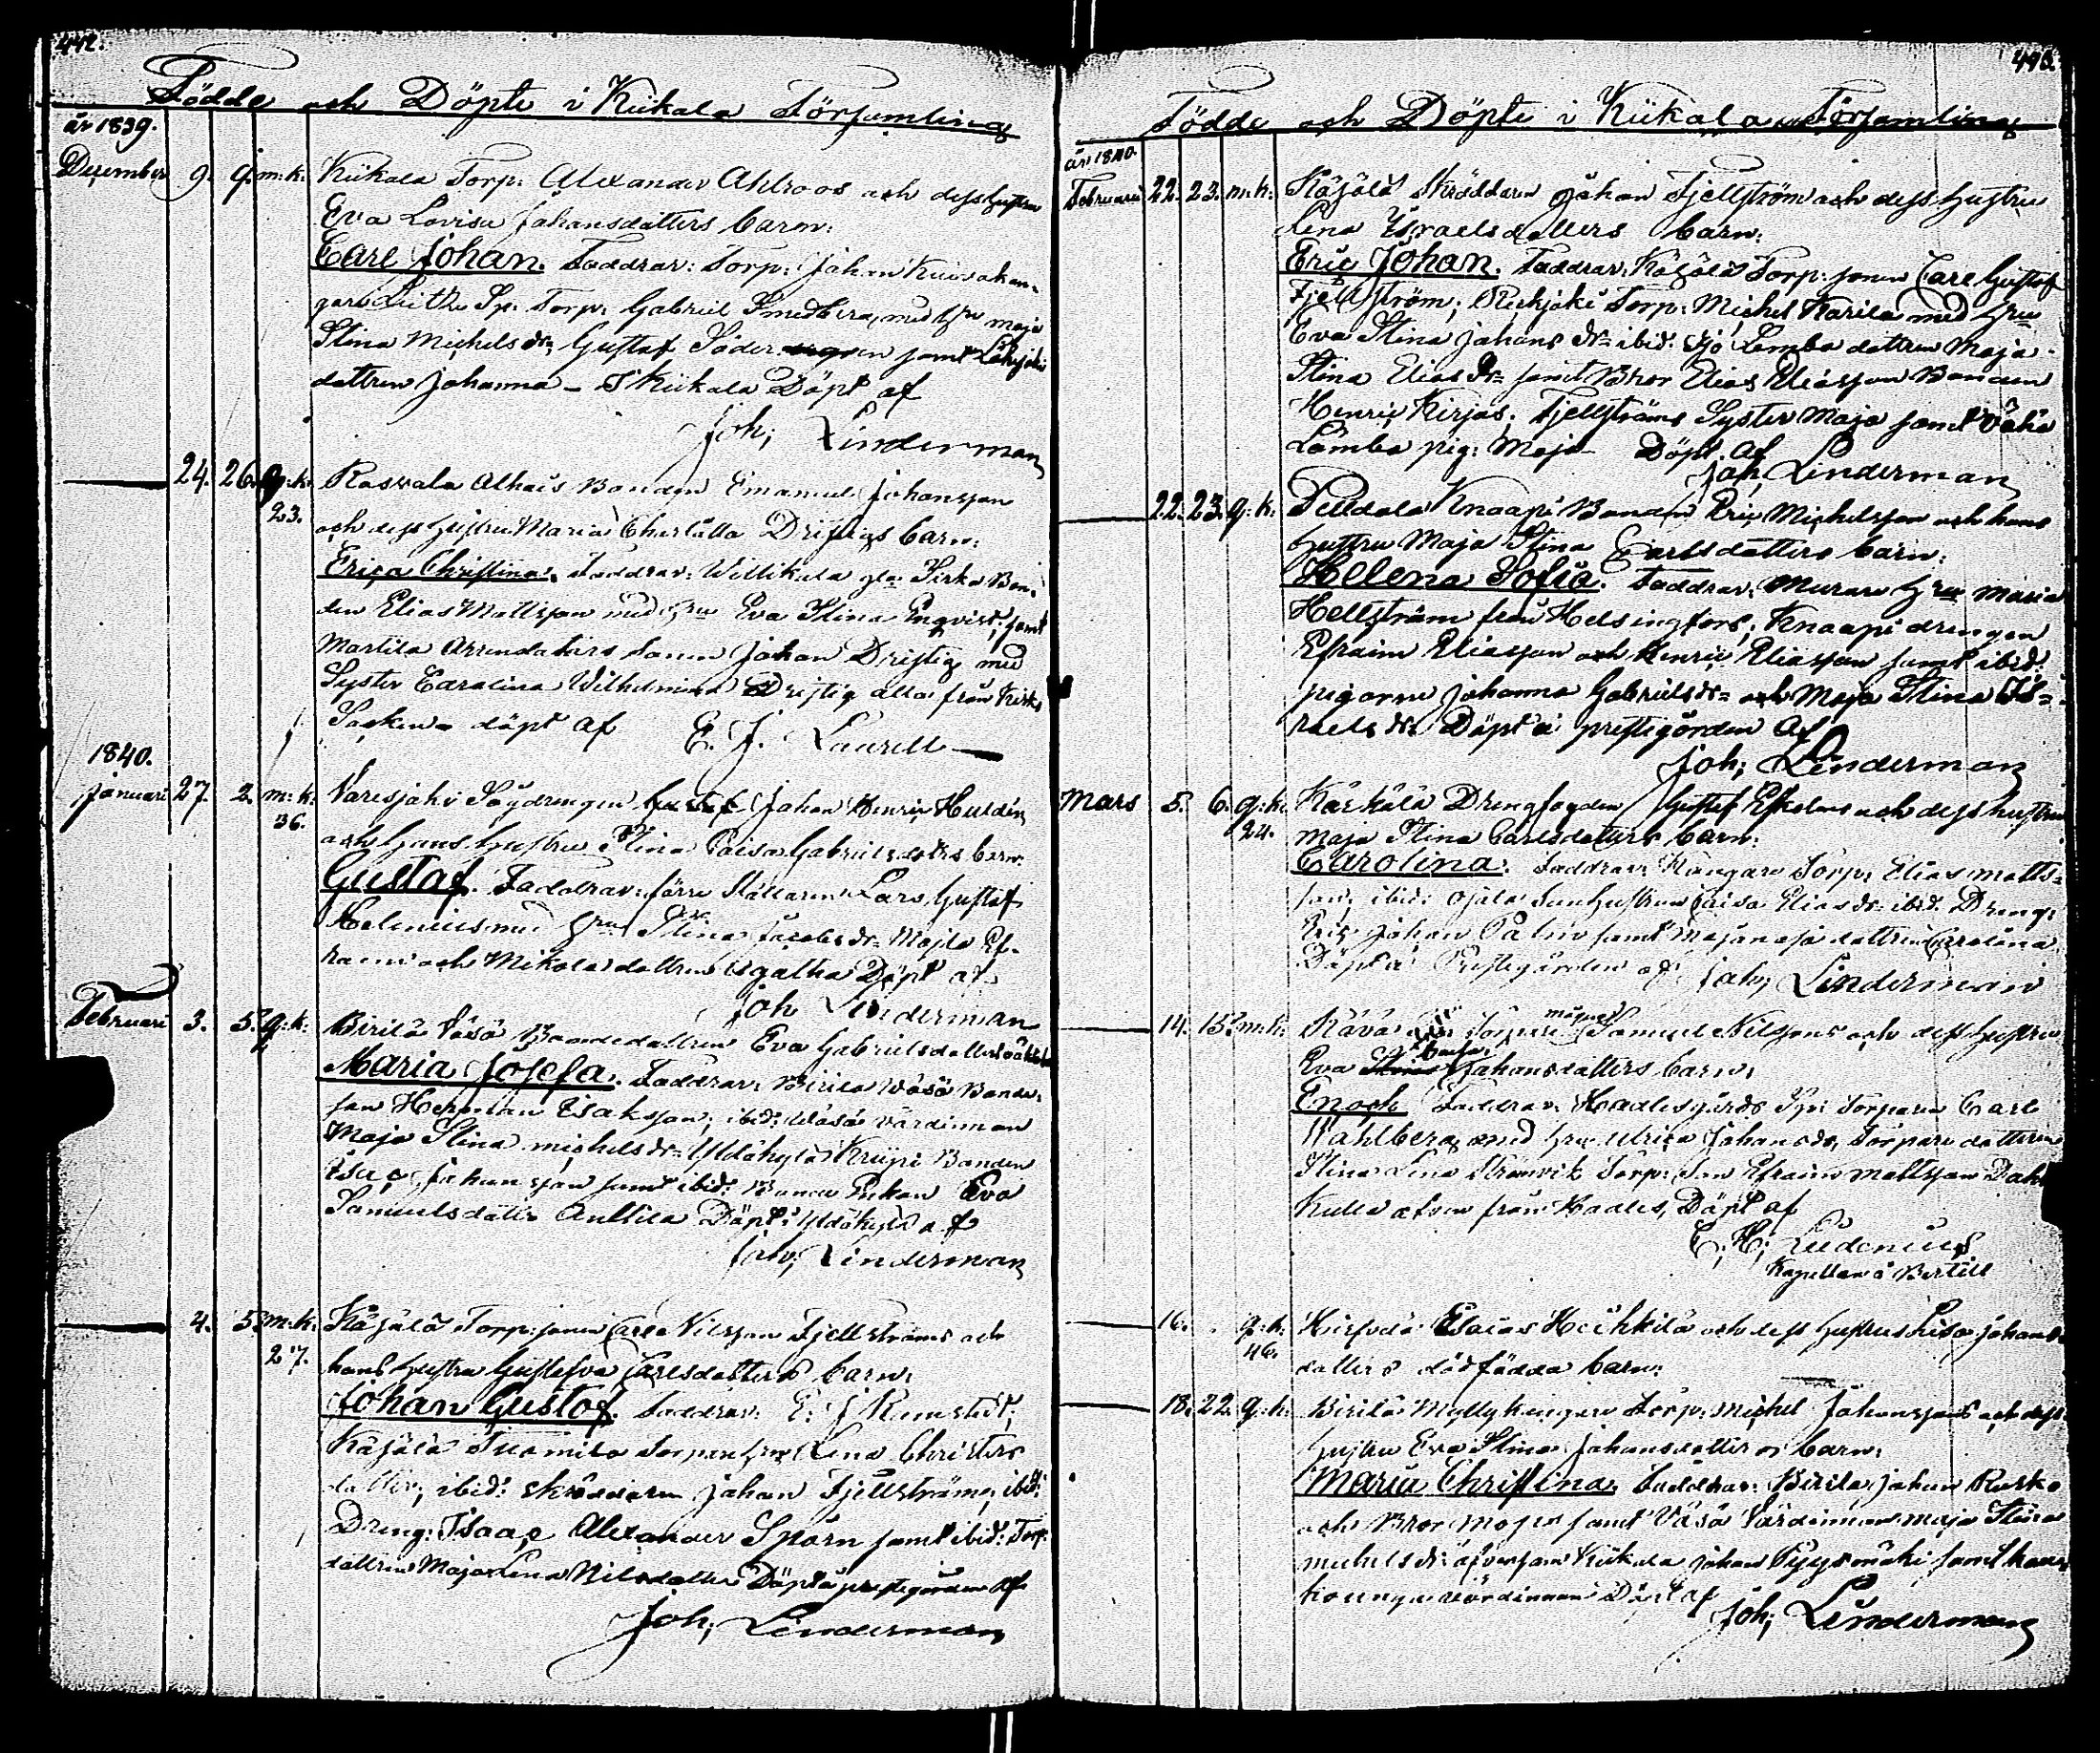 442.
Födde och Döpte i Kiikala Församling
år 1839.
December 9. 9. m:k: Kiikala Torp: Alexander Ahlroos och dess hustru
Eva Lovisa Johansdotters barn:
Carl Johan. Faddrar: Torp: Johan
Torp: Gabriel Smedberg med hru Maja
Stina Michelsdr, Gustaf samt
dottren Johanna – I Kiikala Döpt af
Joh; Linderman
24. 26. q:k: Rasvala Alhais Bonden Emanuel Johansson
23. och dess hustru Maria Charlotta Driftigs barn:
Erica Christina. Faddrar: Willikala Sirka Bon-
den Elias Mattsson med hru Eva Stina Enqvist, samt
Martila Arrendators sonen Johan Driftig med
Syster Carolina Wilhelmina Driftig alla från
Socken – döpt af E. J. Laurell
1840.
Januari 27. 2. m:k: Varesjoki Johan Henric Huldin
36. och hans hustru Stina Caisa Gabrielsdotters barn:
Gustaf. Faddrar: förre Lars Gustaf
Helenius med hru Stina Jacobsdr Ef-
raim och Mikola dottren Agatha Döpt af
Joh Linderman
Februari 3. 5. q:k: Birilä Väsä Bondedottren Eva Gabrielsdotters
Maria Josefa. Faddrar: Birilä Väsä Bonde-
son Herman Isaksson, ibid: Väsä värdinnan
Maja Stina Michelsdr Yldäkylä Kriipi Bonden
Isac Johansson samt ibid: Eva
Samuelsdotter Anttila Döpt i Yldäkylä af
Joh; Linderman
4. 5. m:k: Käjälä Torp: sonen Carl Nilsson Fjellströms och
27. hans hustru Gustafva Carlsdotters barn:
Johan Gustaf. Faddrar: E: J Ramstedt,
Käjälä Tuomila Torpare hru Lena Christers
dotter, ibid: skräddaren Johan Fjellström, ibid:
Dreng: Isaac Alexander Sporn samt ibid: Torp:
dottren Maja Lena Nilsdotter Döpt å prestegården af
Joh; Linderman
443.
Födde och Döpte i Kiikala Församling
år 1840.
Februari 22. 23. m:k: Käjälä Skräddaren Johan Fjellström och dess hustru
Lena Israelsdotters barn:
Eric Johan. Faddrar: Käjälä Torp: sonen Carl Gustaf
Fjellström, Torp: Michel Karila med hru
Eva Stina Johansdr ibid: Lemba dottren Maja
Stina Eliasdr samt Bror Elias Eliasson Bonden
Henric Kirjas, Fjellströms Syster Maja samt Vähä
Lämba pig: Maja Döpt af
Joh Linderman
22. 23. q:k: Pelldola Knaapi Bonden Eric Michelsson och hans
hustru Maja Stina Carlsdotters barn:
Helena Sofia. Faddrar: Murare hru Maria
Hellström från Helsingfors, Knaapi drengen
Efraim Eliasson och Henric Eliasson samt ibid:
pigorna Johanna Gabrielsdr och Maja Stina Is-
raelsdr Döpt å prestegården af
Joh; Linderman
Mars 5. 6. q:k: Kärkälä Drengfogden Gustaf och dess hustru
24. Maja Stina Carlsdotters barn:
Carolina. Faddrar: Kangare Torp: Elias Matts-
son, ibid: Ojala Caisa Eliasdr ibid: Dreng:
Eric Johan Palin samt dottren Carolina
Döpt å Prestegården af Joh; Linderman
14. 15. m:k: måg Samuel Nilssons och dess hustru
Eva Johansdotters barn:
Enoch Faddrar: Haalisgårds Torparen Carl
Wahlberg med hru Ulrica Johansdr, Torpare dottren
Stina Lena Torp: Son Efraim Mattsson
från Haalis, Döpt af
C; H; Lidenius
Kapellan i Bertill
16. q:k: Hirsvelä Esaias Heikkilä och dess hustru Lisa Johans-
46. dotters dödfödda barn:
18. 22. q:k: Birilä Myllykangare Torp: Michel Johanssons och dess
hustru Eva Stina Johansdotters barn:
Maria Christina. Faddrar: Birilä Johan Rosko
och Bror samt Väsä Värdinnan Maja Stina
Michelsdr äfvensom Kiikala Johan Pyysmäki samt
värdinnan Döpt af
Joh; Linderman